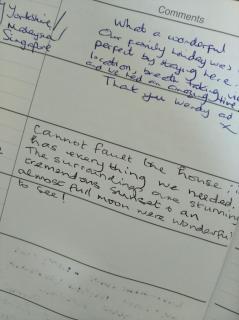 Comments
Yorkshire/
Malaysia/
Singapore
What a wonderful
Our family holiday was
perfect by staying here
location, breath taking
and we've had an amazing time
Thank you Wendy ad
x
Cannot fault the house...
has everything we needed.
The surroundings are stunning
tremendous sunset to an
almost full moon were wonderful
to see!